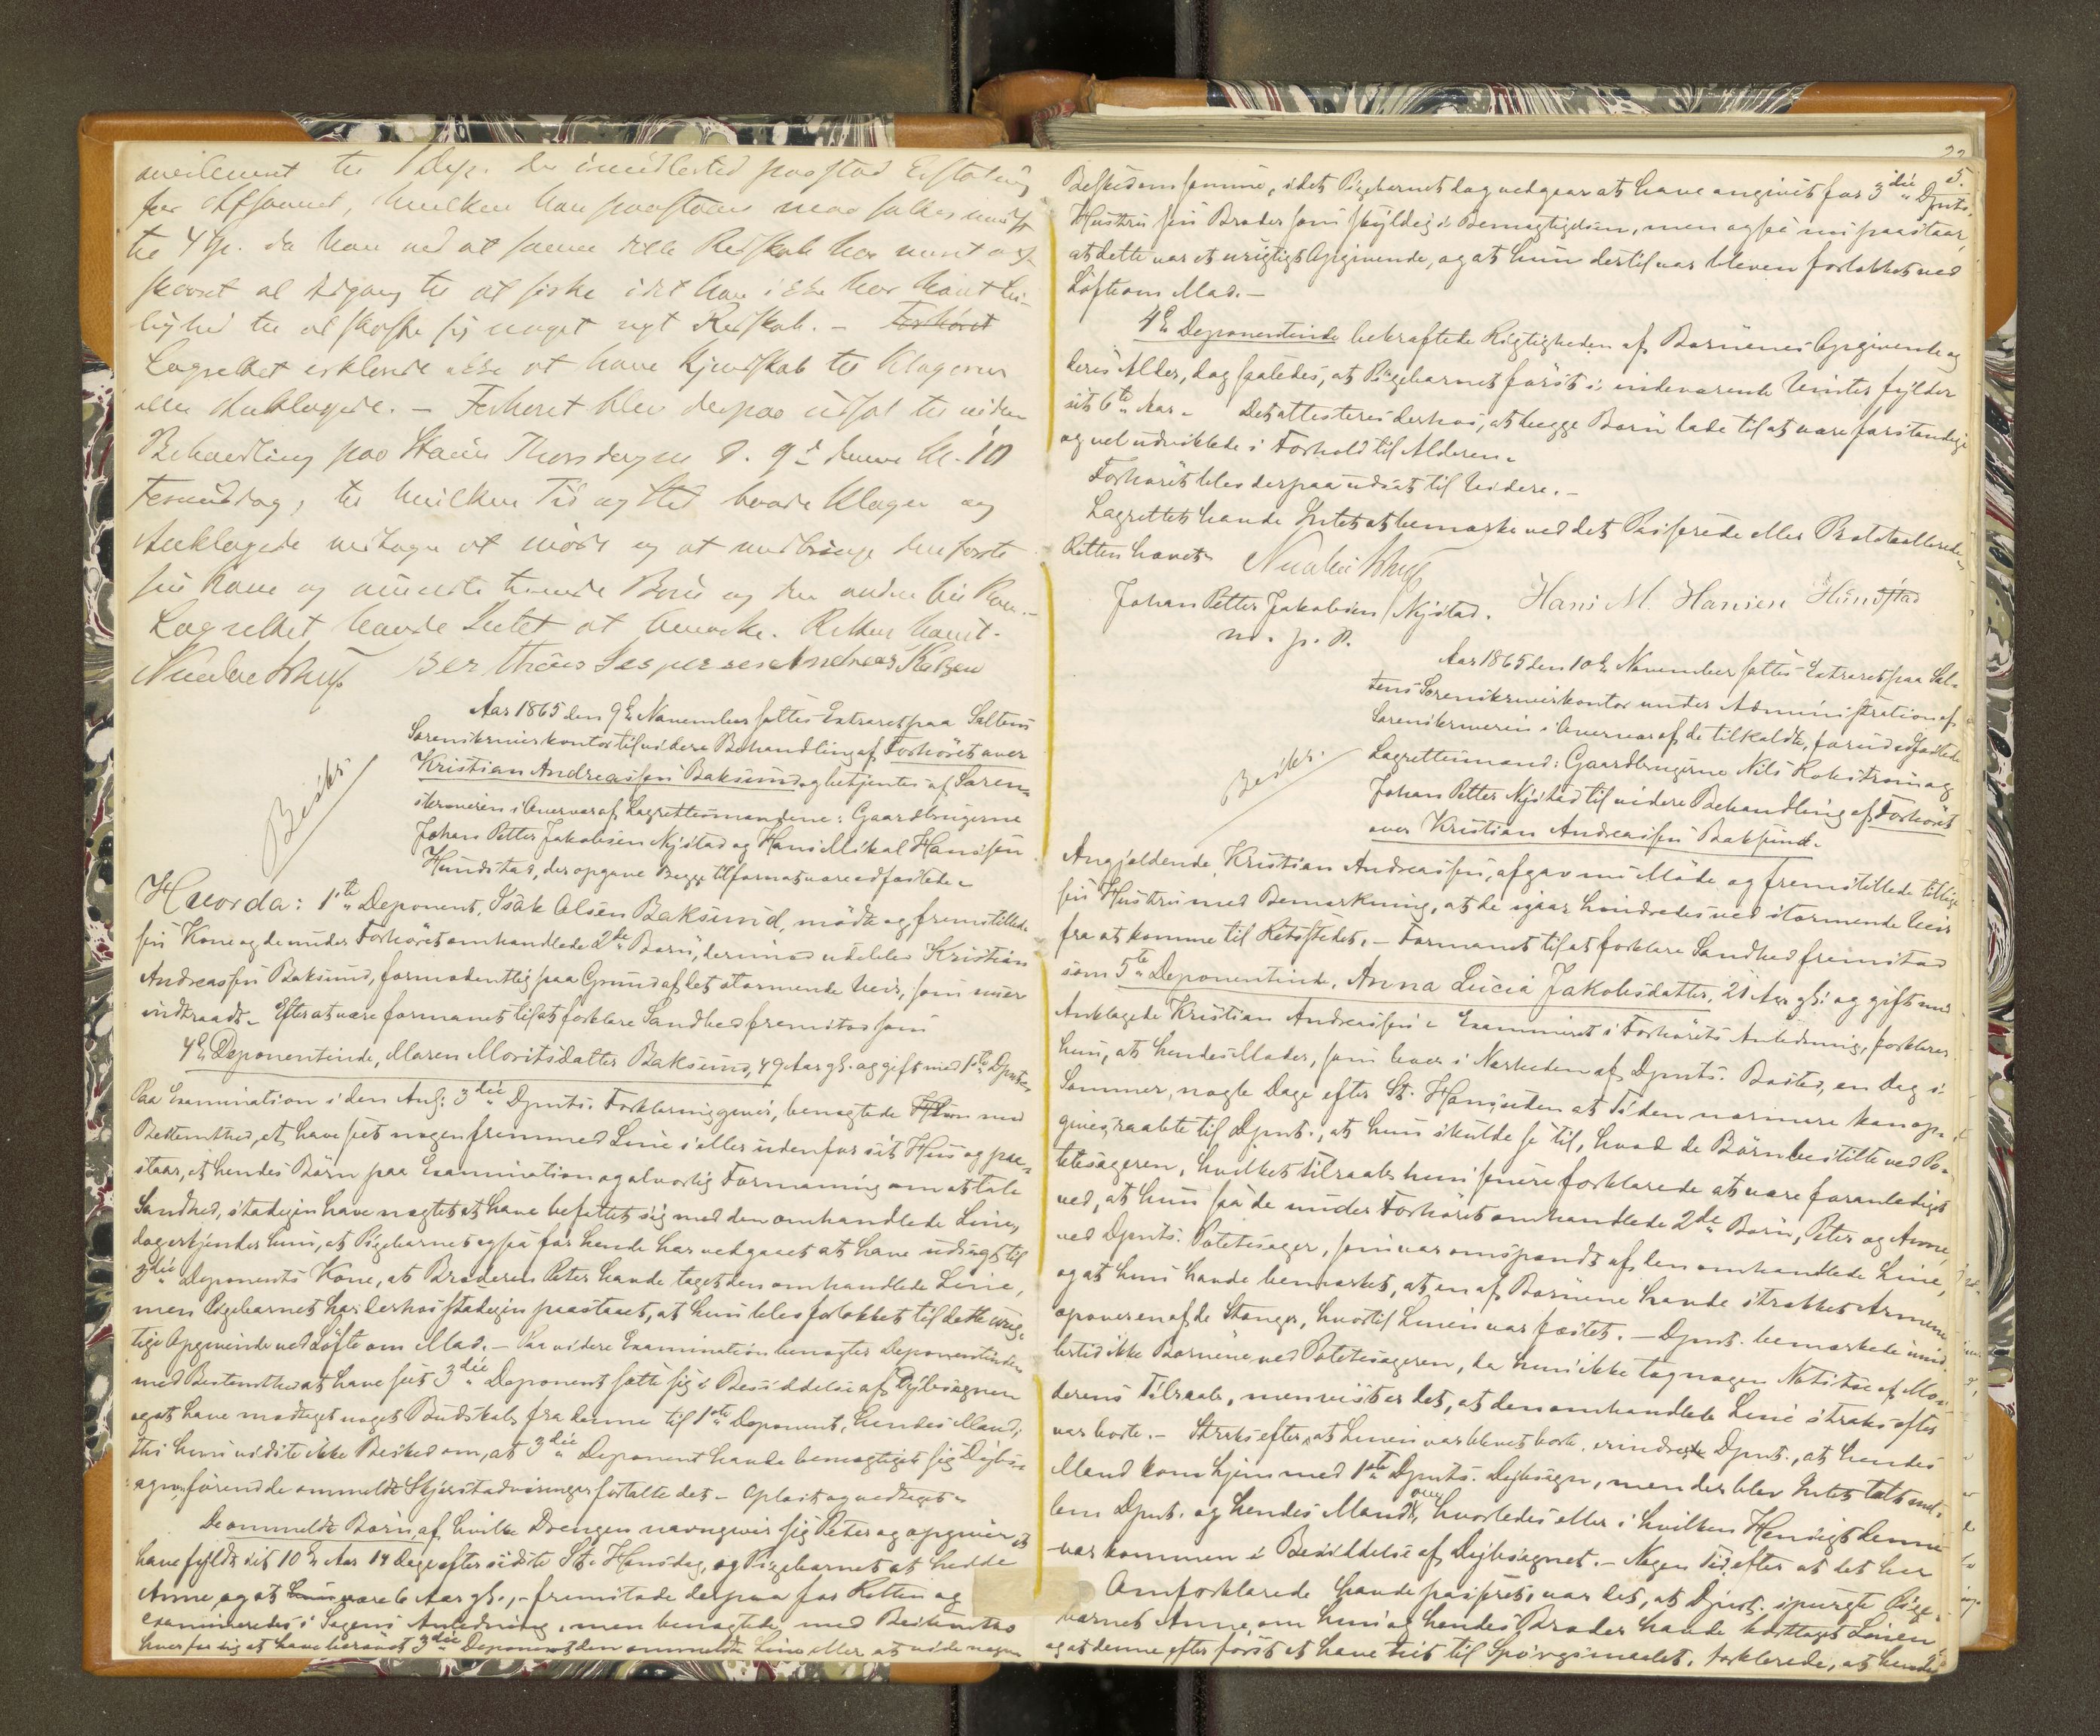 til 1 Dep. Da imidlertid paastod Erstatning
for Afsavnet, hvilken han paastaar maa sættes mindst
til 4 Sp. da han ved at savne dette Redskab har været
at Adgang til at fiske idet han ikke har havt Lei-
lighed til at skaffe sig noget nyt Redskab. – Forhöret
Lagrettet erklærede ikke at have Kjendskab til Klageren
eller Anklagede. – Forhöret blev derpaa udsat til viden
Behandling paa Thorsdagen d. 9d denne Kl. 10
Formiddag, til hvilken Tid og Sted baade Klager og
Anklagede vedtoge at möde og at medbringe den förste
sin Kone og Börn og den anden sin Kone.
Lagrettet havde Intet at bemærke. Retten hævet.
Andreas
Aar 1865 den 9de November sattes Extraret paa Saltens
Sorenskriverkontor til videre Behandling af Forhöret over
Kristian Andreassen Baksund og betjentes af Soren-
skriveren i Overvær af Lagrettesmændene: Gaardbrugerne
Johan Petter Jakobsen Nystad og Hans Mikal Hanssen
Hundstad, der opgave Begge tilforn at være edfæstede.
Besikr.
Hvorda: 1ste Deponent, Isak Olsen Baksund, mödte og fremstillede
sin Kone og de under Forhöret omhandlede 2de Börn, derimod udeblev Kristian
Andreassen Baksund, formodentlig paa Grund af det stormende Veir, som nu er
indtraadt. Efter at være formanet til at forklare Sandhed fremstod som
4de Deponentinde, Maren Moritsdatter Baksund, 49 Aar gl. og gift med 1ste Dpnt.
Paa Examination i den Anl: 3die Dpnts. Forklaring giver, benægtede Hun med
Bestemthed, at have seet nogen fremmed Line i eller udenfor sit Hus og paa-
staar, at hendes Börn paa Examination og alvorlig Formaning om at tale
Sandhed, stadigen have nægtet at have befattet sig med den omhandlede Line,
dog erkjender hun, at Pigebarnet ogsaa for hende har vedgaaet at have udsagt til
3die Deponents Kone, at Broderen Peter havde taget den omhandlede Line,
men Pigebarnet har derhos stadigen paastaaet, at hun blev forlokket til dette urig-
tige Opgivende ved Löfte om Mad. – Paa videre Examination benægter Deponentinden
med Bestemthed at have seet 3die Deponent sætte sig i Besiddelse af Dybsagnen
og at have modtaget noget Budskab fra denne til 1ste Deponent, hendes Mand;
thi hun vidste ikke Besked om, at 3die Deponent havde bemægtiget sig Dybs-
agn, förend de ommeldte Skjerstadværinger fortalte det. – Oplæst og vedtaget.
De ommeldte Börn af hvilke Drengen navngiver sig Peter og opgiver at
have fyldt sit 10de Aar 14 Dage efter sidste St. Hansdag, og Pigebarnet at hedde
Anne og at hun være 6 Aar gl., – fremstode derpaa for Retten og
examineredes i Sagens Anledning, men benægtede med Bestemthed
hver for sig at have berövet 3die Deponent den ommeldte Line eller at vide nogen
5.
Besked om samme, idet Pigebarnet dog vedgaar at have angivet for 3die Dpnts.
Hustru sin Broder som skyldig i Bemægtigelsen, men ogsaa nu paastaar,
at dette var et urigtigt Opgivende, og at hun dertil var bleven forlokket ved
Löfte om Mad. –
4de Deponentinde bekræftede Rigtigheden af Börnenes Opgivende og
deres Alder, dog saaledes, at Pigebarnet först i indeværende Vinter fylder
sit 6te Aar. Det attesteres derhos, at begge Börn lade til at være forstandige
og vel udviklede i Forhold til Alderen.
Forhöret blev derpaa udsat til Videre. –
Lagrettet havde Intet at bemærke ved det Passerede eller Protokollerede.
Retten hævet.
Johan Petter Jakobsen Nystad. Hans M. Hansen Hundstad
m. p. P.
Aar 1865 den 10de November sattes Extraret paa Sal-
tens Sorenskriverkontor under Administration af
Sorenskriveren i Overvær af de tilkaldte, forud edfæstede
Lagrettesmænd: Gaardbrugerne Nils Hokstrom og
Johan Petter Nystad til videre Behandling af Forhöret
over Kristian Andreassen Baksund.
Besikr.
Angjeldende, Kristian Andreassen, afgav nu Möde og fremstillede tillige
sin Hustru med Bemærkning, at de igaar hindredes ved stormende Veir
fra at komme til Retstedet. – Formanet til at forklare Sandhed fremstod
som 5te Deponentinde, Anna Lucia Jakobsdatter, 21 Aar gl. og gift med
Anklagede Kristian Andreassen. Examineret i Forhörets Anledning, forklarer
hun, at hendes Moder, som boer i Nærheden af Dpnts. Bosted, en Dag i
Sommer, nogle Dage efter St. Hans, uden at Tiden nærmere kan op-
gives, raabte til Dpnt., at hun skulde se til, hvad de Börn bestilte ved Po-
tetesageren, hvilket Tilraab hun senere forklarede at være foranlediget
ved, at hun saa de under Forhöret omhandlede 2de Börn, Peter og Anne,
ved Dpnts. Potetesager, som var omspændt af den omhandlede Line,
og at hun havde bemærket, at en af Börnene havde strakket Armene
op over en af de Stænger, hvortil Linen var fæstet. – Dpnt. bemærkede imid-
lertid ikke Börnene ved Potetesageren, da hun ikke tog nogen Notitse af Mo-
derens Tilraab, men vist er det, at den omhandlede Line straks efter
var borte. – Straks efter at Linen var blevet borte, erindrede Dpnt., at hendes
Mand kom hjem med 1ste Dpnts. Dybsagn, men der blev Intet talt mel-
lem Dpnt. og hendes Mand om, hvorledes eller i hvilken Hensigt denne
var kommen i Besiddelse af Dybsagnet. – Nogen Tid efter at det her
Omforklarede havde passeret, var det, at Dpnt. spurgte Pige-
barnet Anne, om hun og hendes Broder havde borttaget Linen,
og at denne efter först at have tiet til Spörgsmaalet, forklarede, at hendes